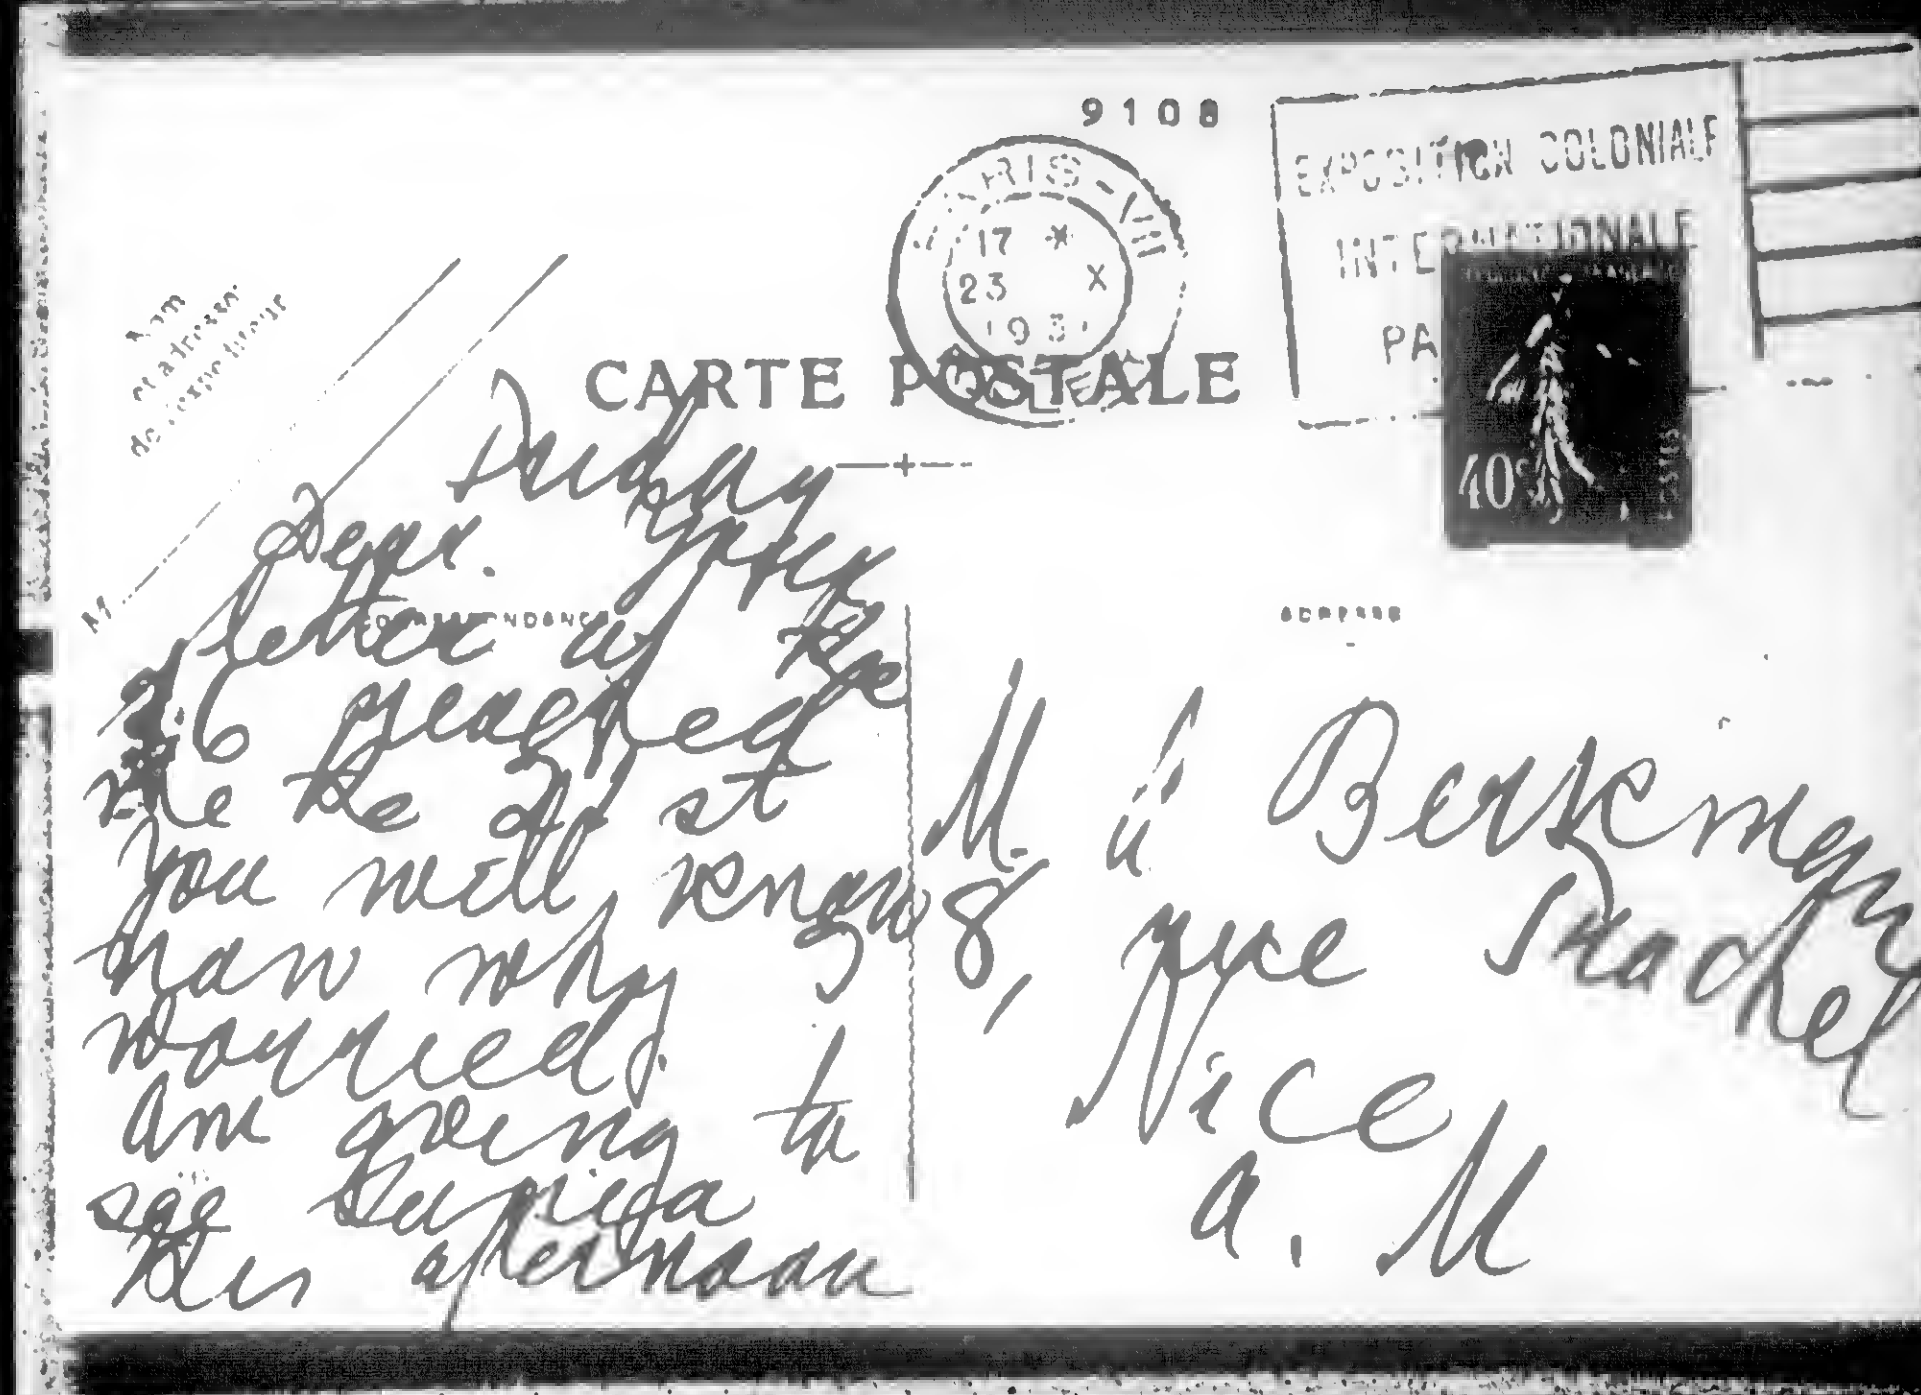 9108
PARIS-VIII
17 *
23 X
1931
EXPOSITION COLONIALE
INTERNATIONALE
PA
40c
Nom
et adresse
de l'expéditeur
M
CARTE POSTALE
CORRESPONDANCE
ADRESSE
Dear. Your
letter of the
26 reached
me the 21 st
You will know
now why I
worried.
Am going to
see
this afternoon
M. A Berkman
8, rue Trachel
Nice
A. M